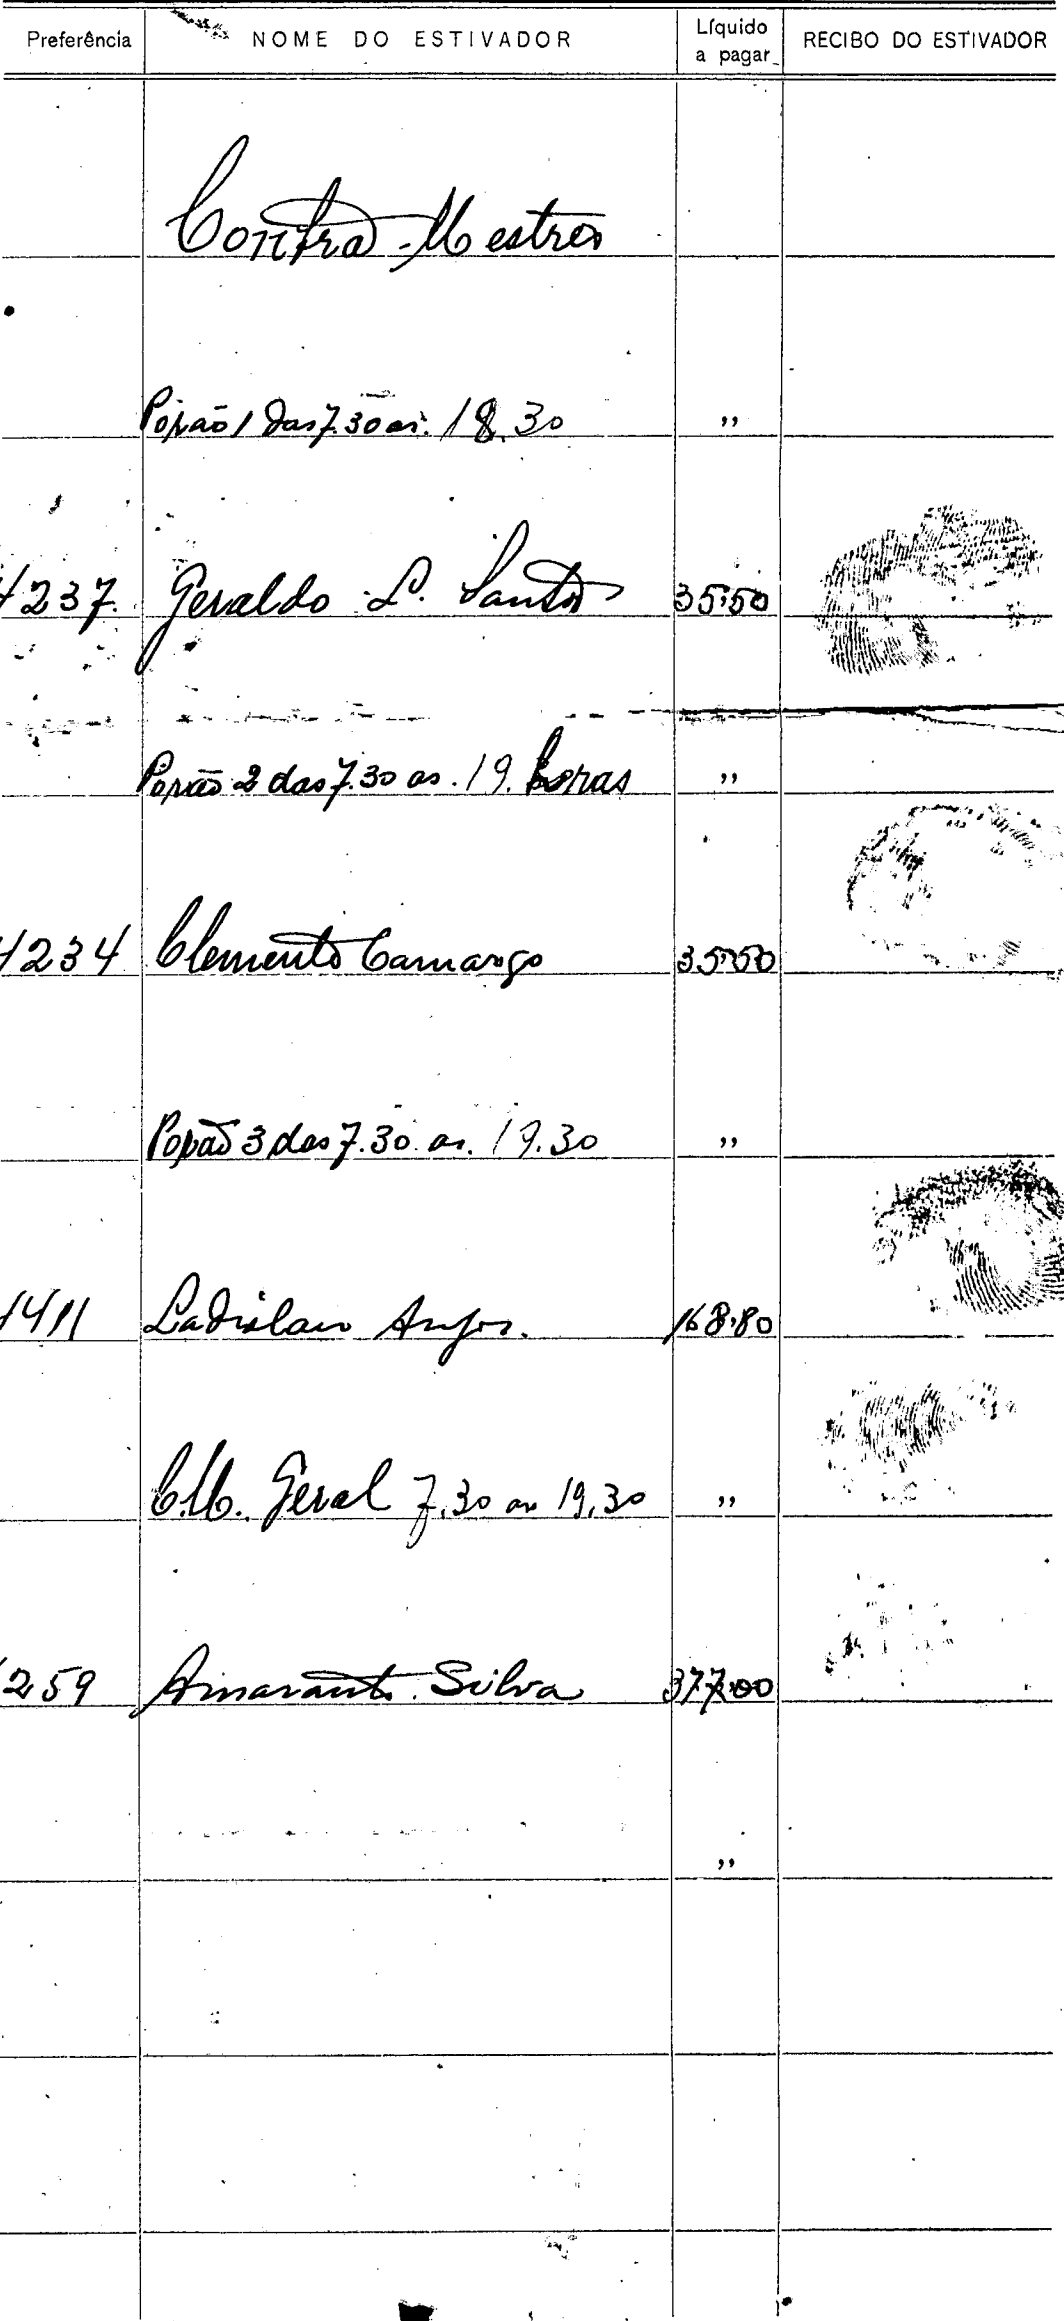 Preferência NOME DO ESTIVADOR Líquido a pagar RECIBO DO ESTIVADOR
Contra-Mestres
Porão 1 das 7.30 as. 18.30 ,,
1237. Geraldo L. Santos 35.50
Porão 2 das 7.30 as. 19. horas ,,
1234 Clemente Camargo 35.50
Porão 3 das 7.30 as. 19.30 ,,
1411 Ladislau Anjos. 168.80
C.M. Geral 7.30 as 19.30 ,,
259 Amarante Silva 377.00
,,